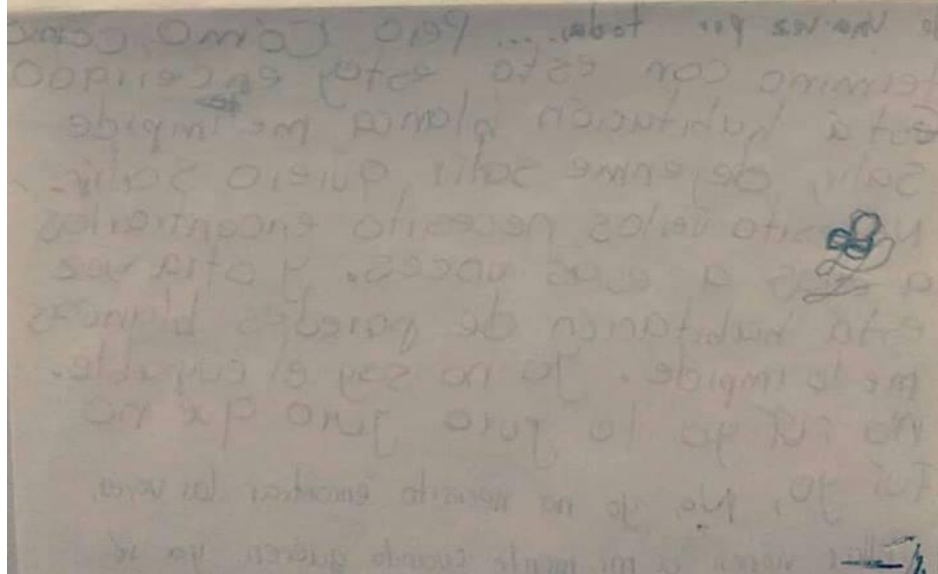 de una vez por todas.... Pero Cómo como
termino con esto estoy encerrado
Está habitación blanca me impide
Salir, dejenme salir, quiero salir.
Necesito verlos necesito encontrarlos
a esas voces. y otra vez
está habitación de paredes blancas
me lo impide. yo no soy el culpable.
no fui yo lo juro juro qx no
Fui yo, No, yo no necesito encontrar las voces
ellas vienen a mi mente cuando quieren. ya sé